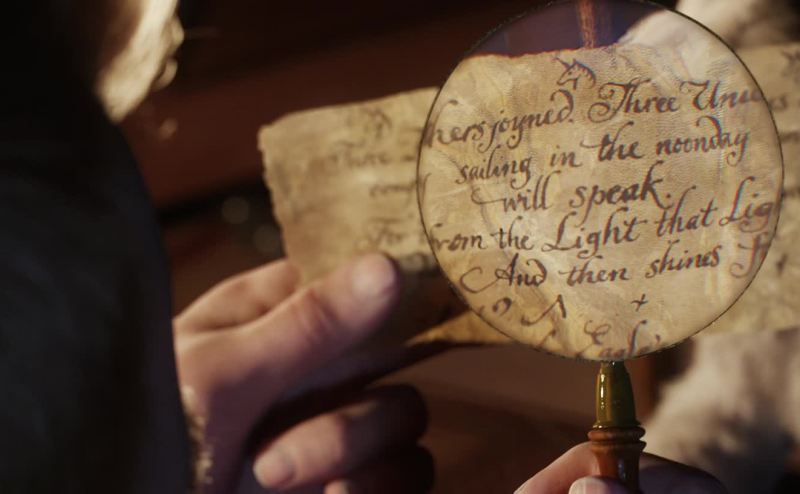 hers joyned. Three Un
sailing in the noonday
will speak.
rom the Light that Lig
And then shines
Eagle